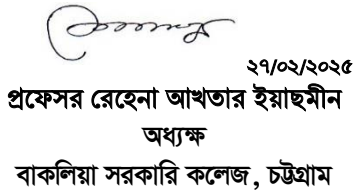 ২৭/০২/২০২৫
প্রফেসর রেহেনা আখতার ইয়াছমীন
অধ্যক্ষ
বাকলিয়া সরকারি কলেজ, চট্টগ্রাম